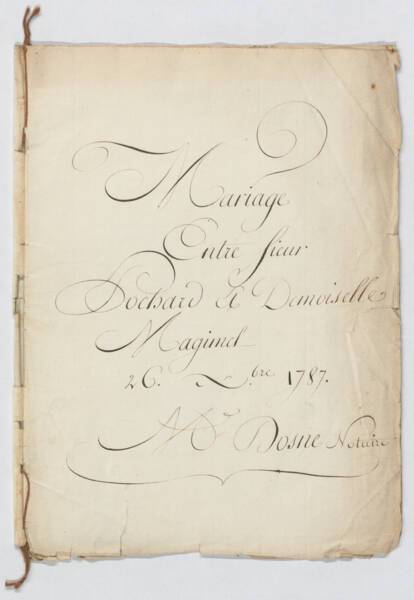 Mariage
Entre sieur
Pochard et Demoiselle
Magimel
26. Nbre 1787.
Me Dosne Notaire